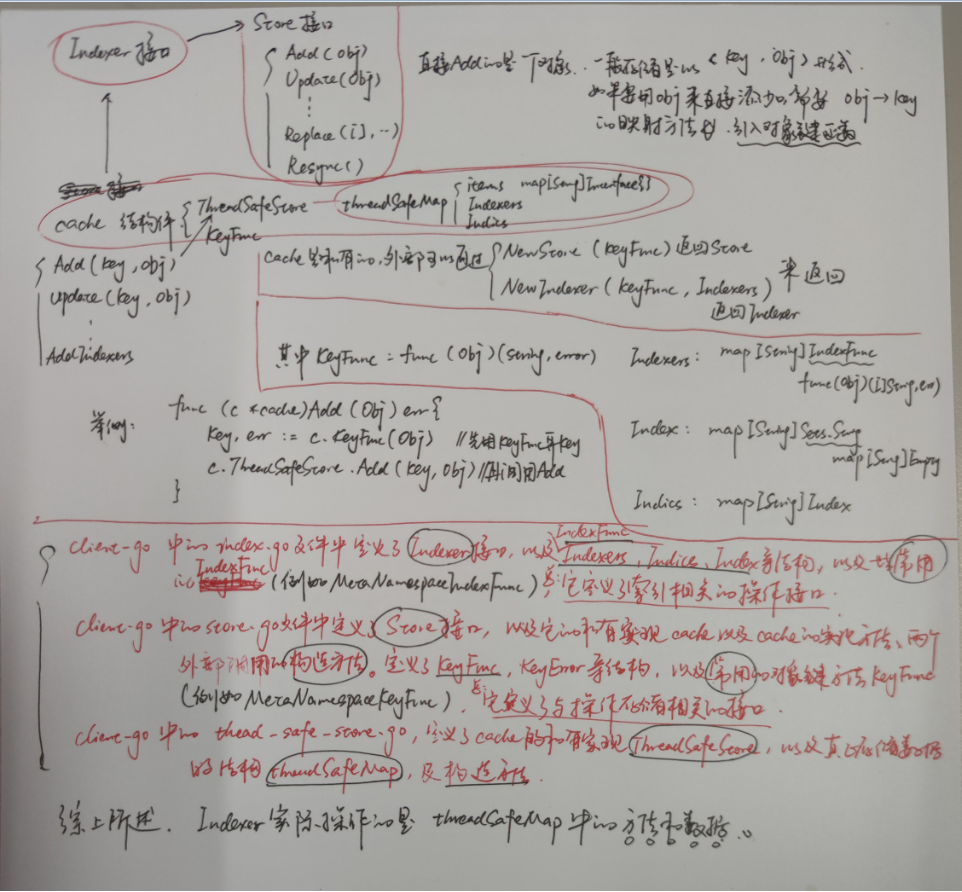 Indexer 接口
Store 接口
Add(obj)
Update(Obj)
⋮
Replace([], ...)
Resync()
直接Add的是一个对象. 一般存储是以 (key, obj) 形式.
如果要用obj来直接添加,需要 obj→key
的映射方法, 引入对象键函数
cache 结构体 { ThreadSafeStore
KeyFunc
threadSafeMap { items map[String]Interface{}
Indexers
Indics
Add(key, obj)
update(key, obj)
⋮
AddIndexers
cache是私有的, 外部可以通过 { NewStore (KeyFunc) 返回Store
NewIndexer (KeyFunc, Indexers) 来返回
返回Indexer
其中 KeyFunc = func (Obj)(string, error)
Indexers: map[String]IndexFunc
func(Obj)([]String, err)
Index: map[String]Sets.String
map[String]Empty
Indics: map[String]Index
举例:
func (c *cache)Add (Obj) err{
Key, err := c.KeyFunc(Obj) //先用KeyFunc算Key
c.ThreadSafeStore.Add (key, Obj) //再调用Add
}
IndexFunc
client-go 中的 index.go 文件中定义了 Indexer 接口, 以及 Indexers, Indics, Index等结构, 以及一些常用
的 IndexFunc (例如 MetaNamespaceIndexFunc) 它定义了索引相关的操作接口.
client-go 中的 store.go文件中定义了 Store 接口, 以及它的私有实现 cache 以及cache的实现方法、两个
外部可用的构造方法。定义了 KeyFunc, KeyError等结构, 以及常用的对象键方法KeyFunc
(例如 MetaNamespaceKeyFunc). 它定义了与操作存储相关的接口
client-go 中的 thead_safe_store.go, 定义了 cache的私有实现 ThreadSafeStore, 以及真正存储数据
的结构 threadSafeMap, 及构造方法.
综上所述. Indexer 实际操作的是 threadSafeMap 中的方法和数据.